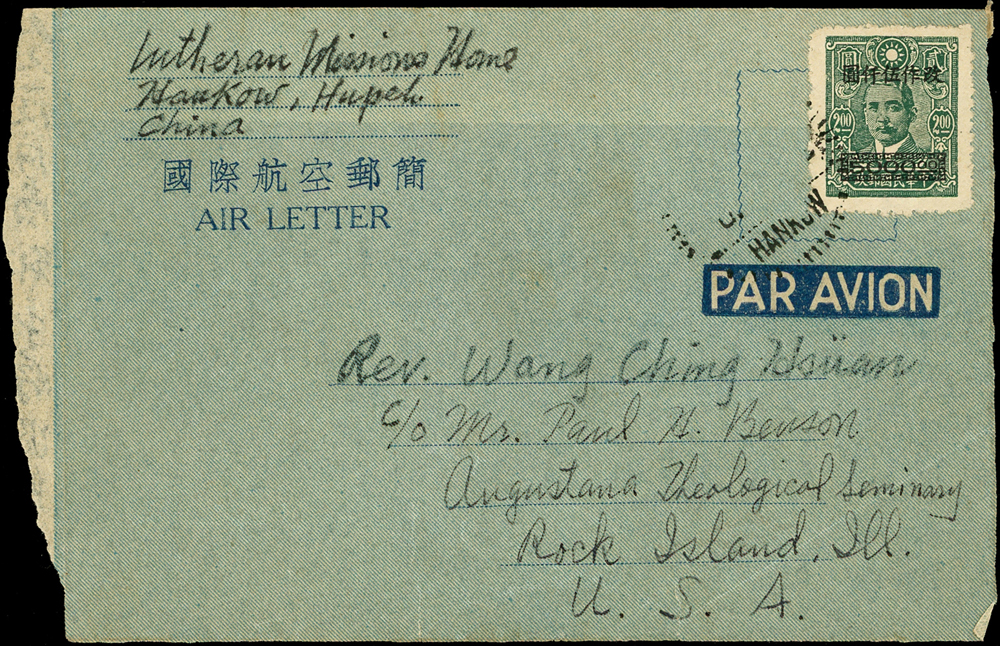 Lutheran Missions Home
Hankow, Hupeh
China
國際航空郵簡
AIR LETTER
圓 貳
改作伍仟圓
2.00 2.00
5000.00
HANKOW
PAR AVION
Rev. Wang Ching Hsüan
c/o Mr. Paul H. Benson
Augustana Theological Seminary
Rock Island, Ill.
U. S. A.